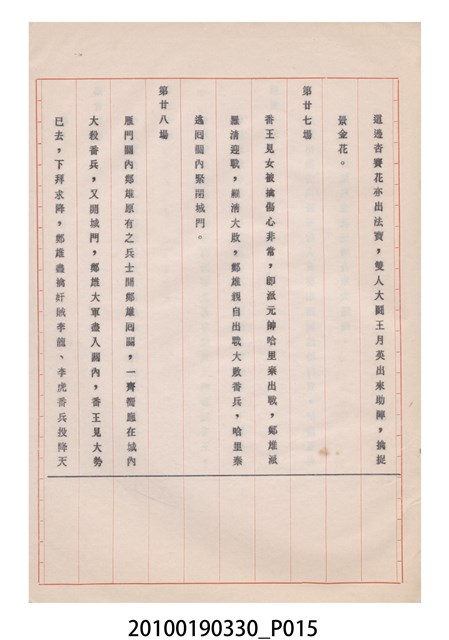 這邊杏賽花亦出法寶，雙人大鬪王月英出來助陣，擒捉
景金花。
第廿七場
番王見女被擒傷心非常，卽派元帥哈里泰出戰，鄭雄派
羅清迎戰，羅清大敗，鄭雄親自出戰大敗番兵，哈里泰
逃回關內緊閉城門。
第廿八場
雁門關內鄭雄原有之兵士聞鄭雄回關，一齊響應在城內
大殺番兵，又開城門，鄭雄大軍盡入關內，番王見大勢
已去，下拜求降，鄭雄盡擒奸賊李龍、李虎番兵投降天
20100190330_P015